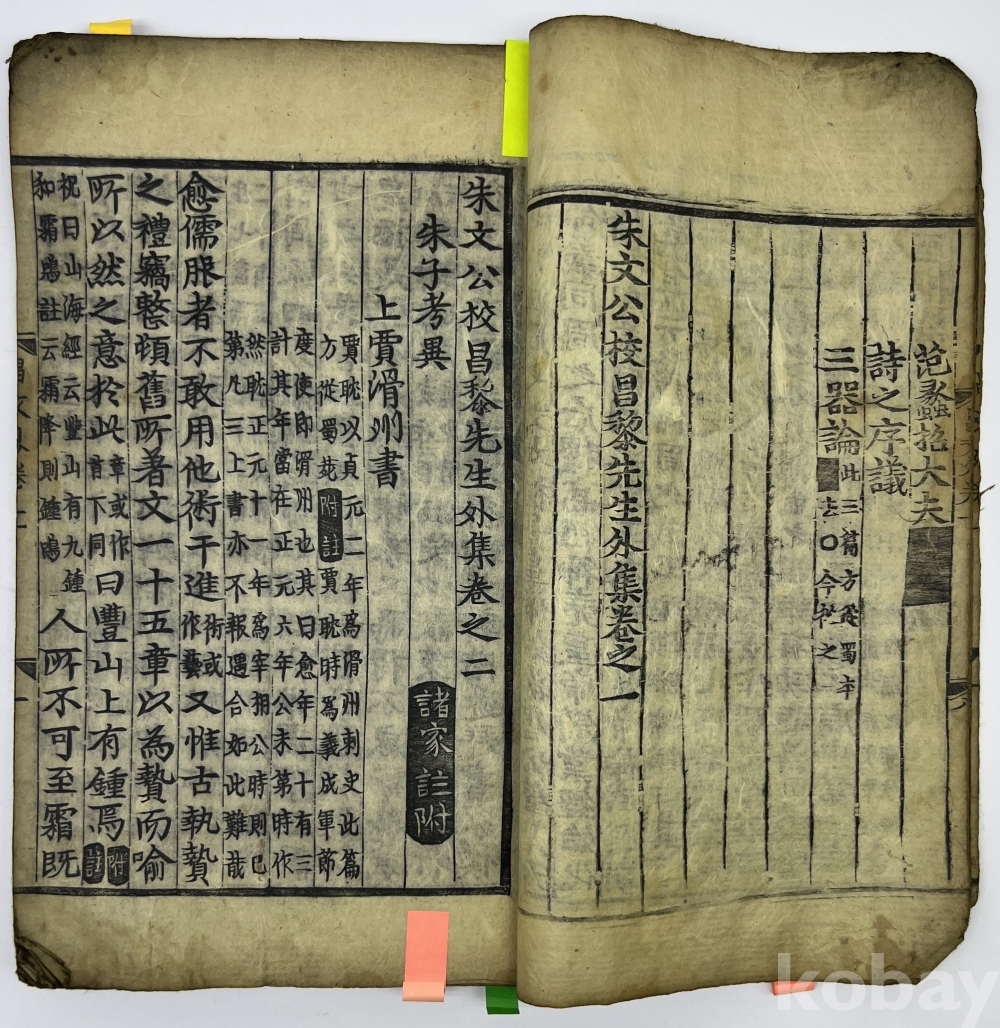 范蠡招大夫
詩之序議
三器論
此三篇方從蜀本
去〇今從之
朱文公校昌黎先生外集卷之一
朱文公校昌黎先生外集卷之二
朱子考異 諸家註附
上賈滑州書
賈耽以貞元二年爲滑州刺史此篇
方從蜀苑 附註 賈耽時爲義成軍節
度使即滑州也其曰愈年二十有三
計其年當在正元六年公未第時作
然耽正元十一年爲宰相公時則已
第凡三上書亦不報遇合如此難哉
愈儒服者不敢用他術干進術或作藝又惟古執贄
之禮竊整頓舊所著文一十五章以為贄而喻
所以然之意於此章或作首下同曰豐山上有鍾焉附註
祝曰山海經云豐山有九鍾
和霜鳴註云霜降則鍾鳴
人所不可至霜既
kobay